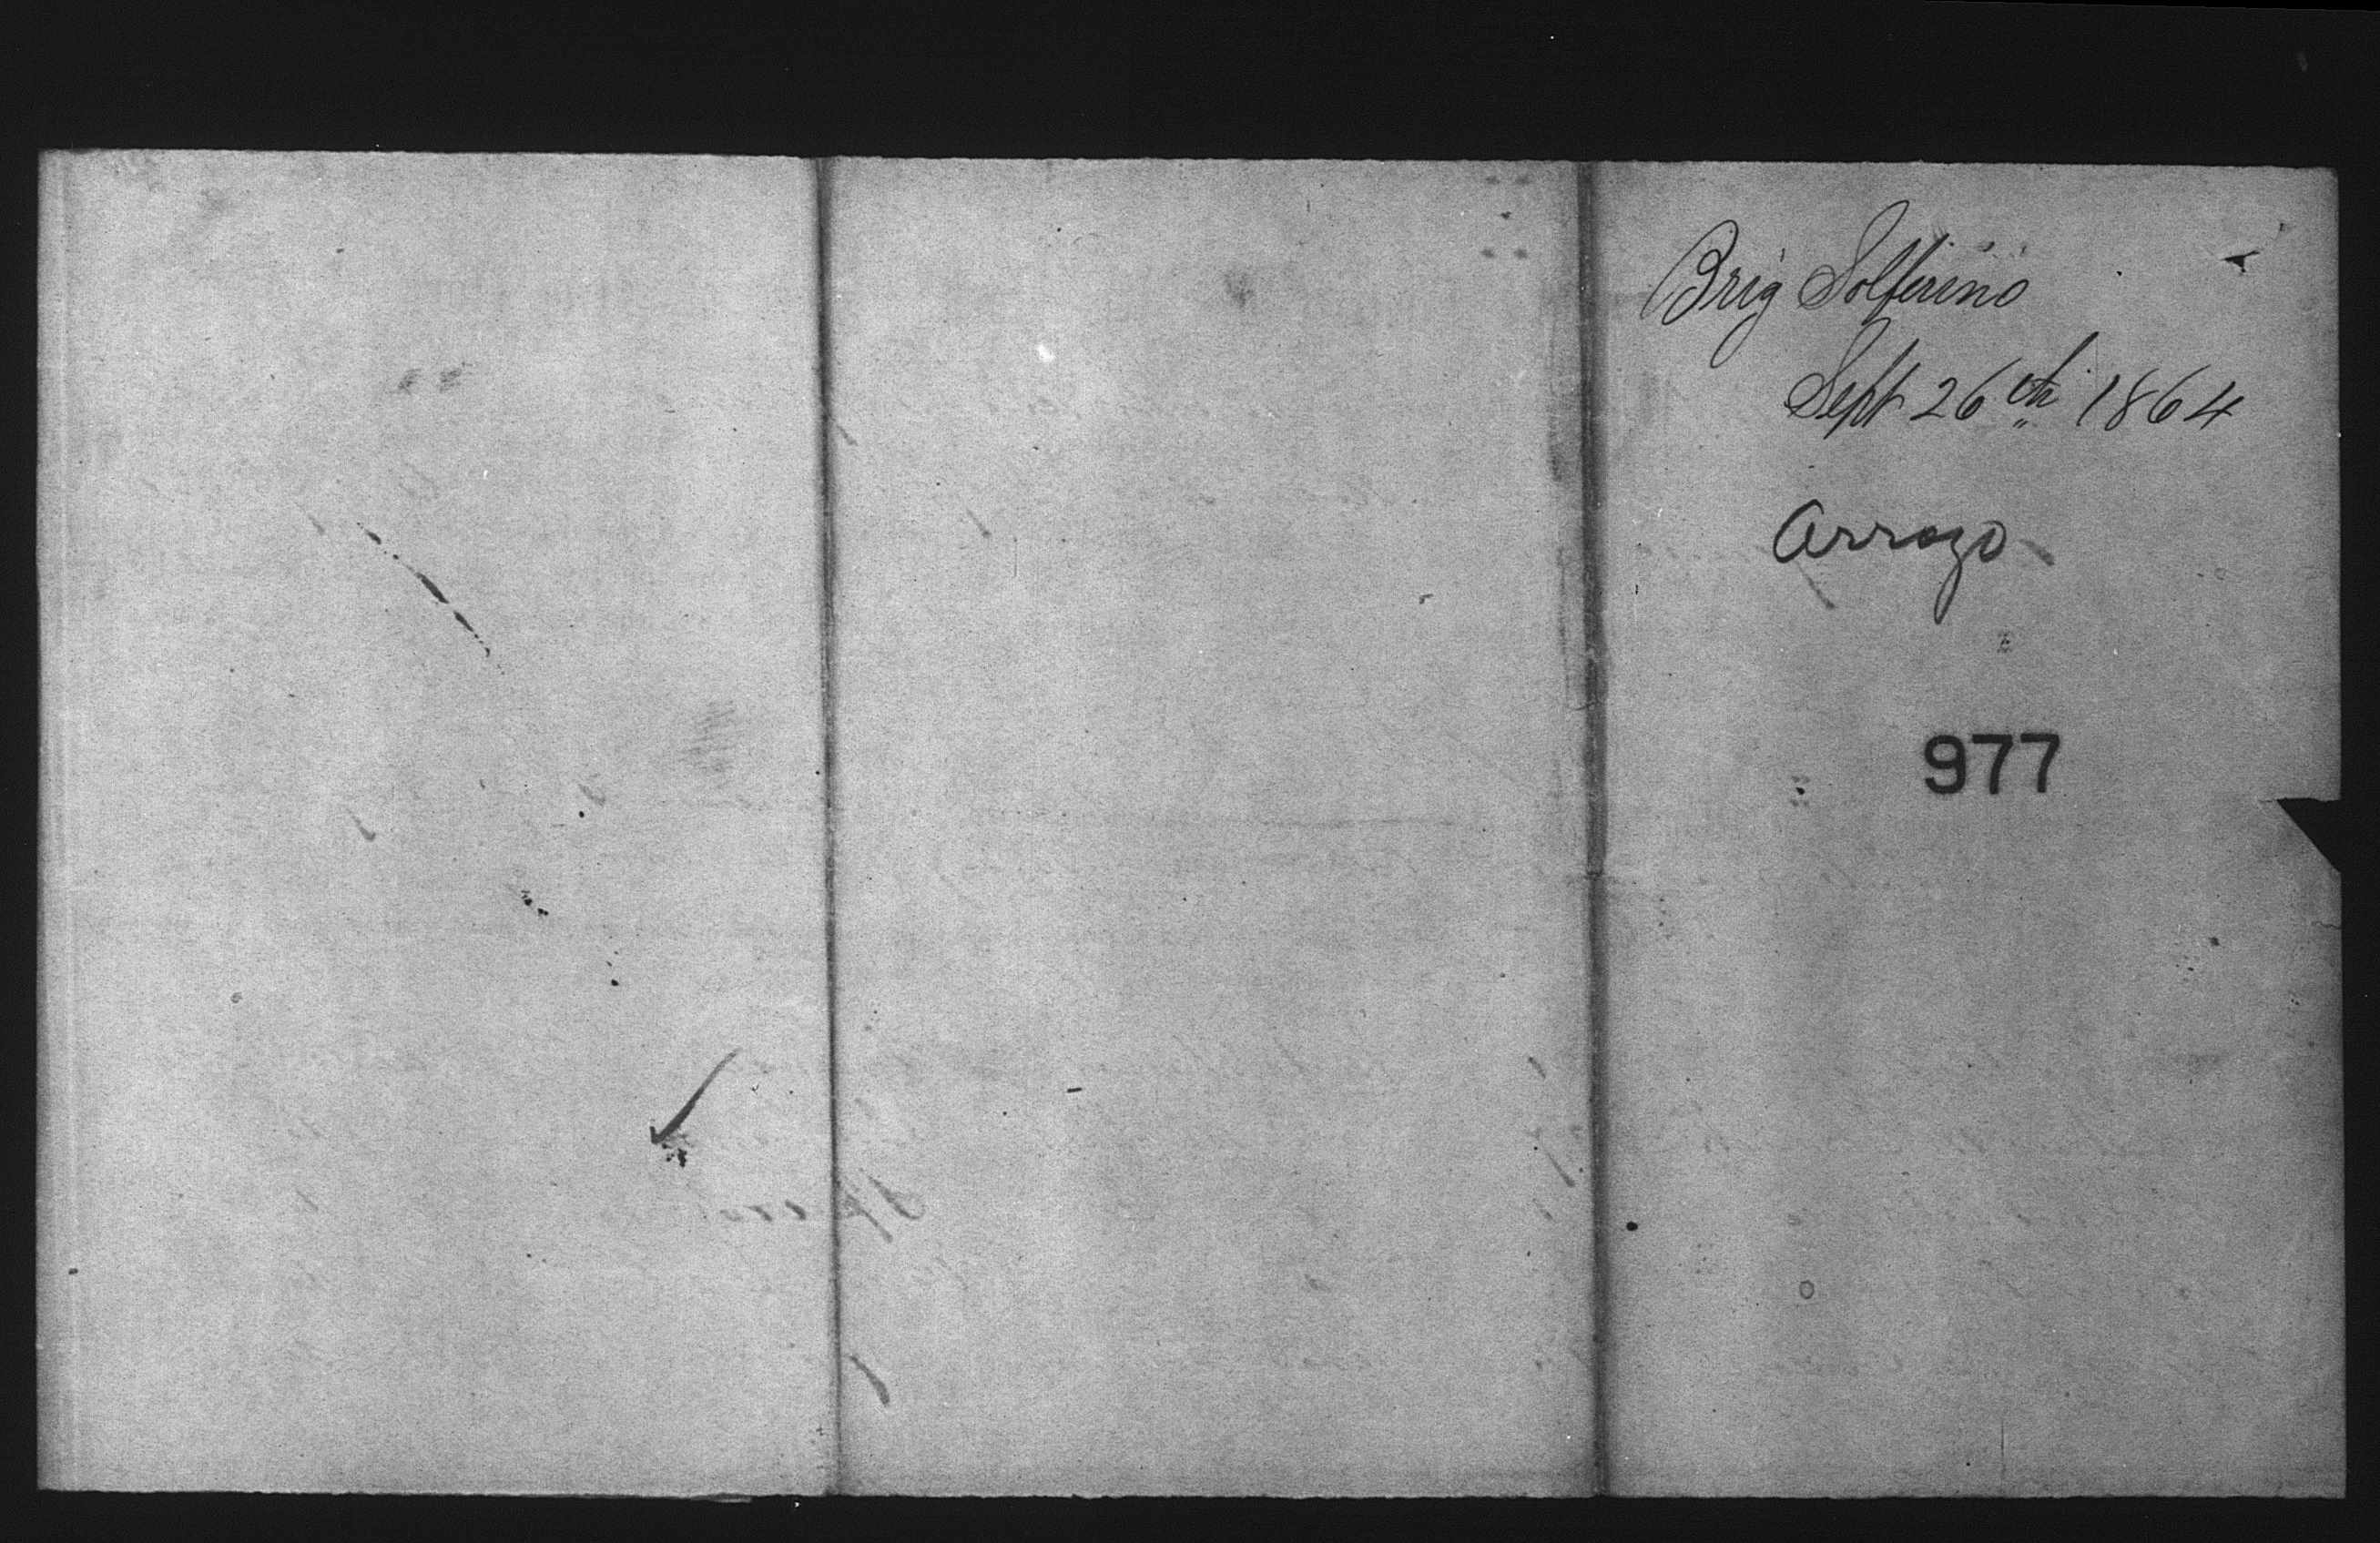 Brig Solferino
Sept 26th 1864
Arroyo
977